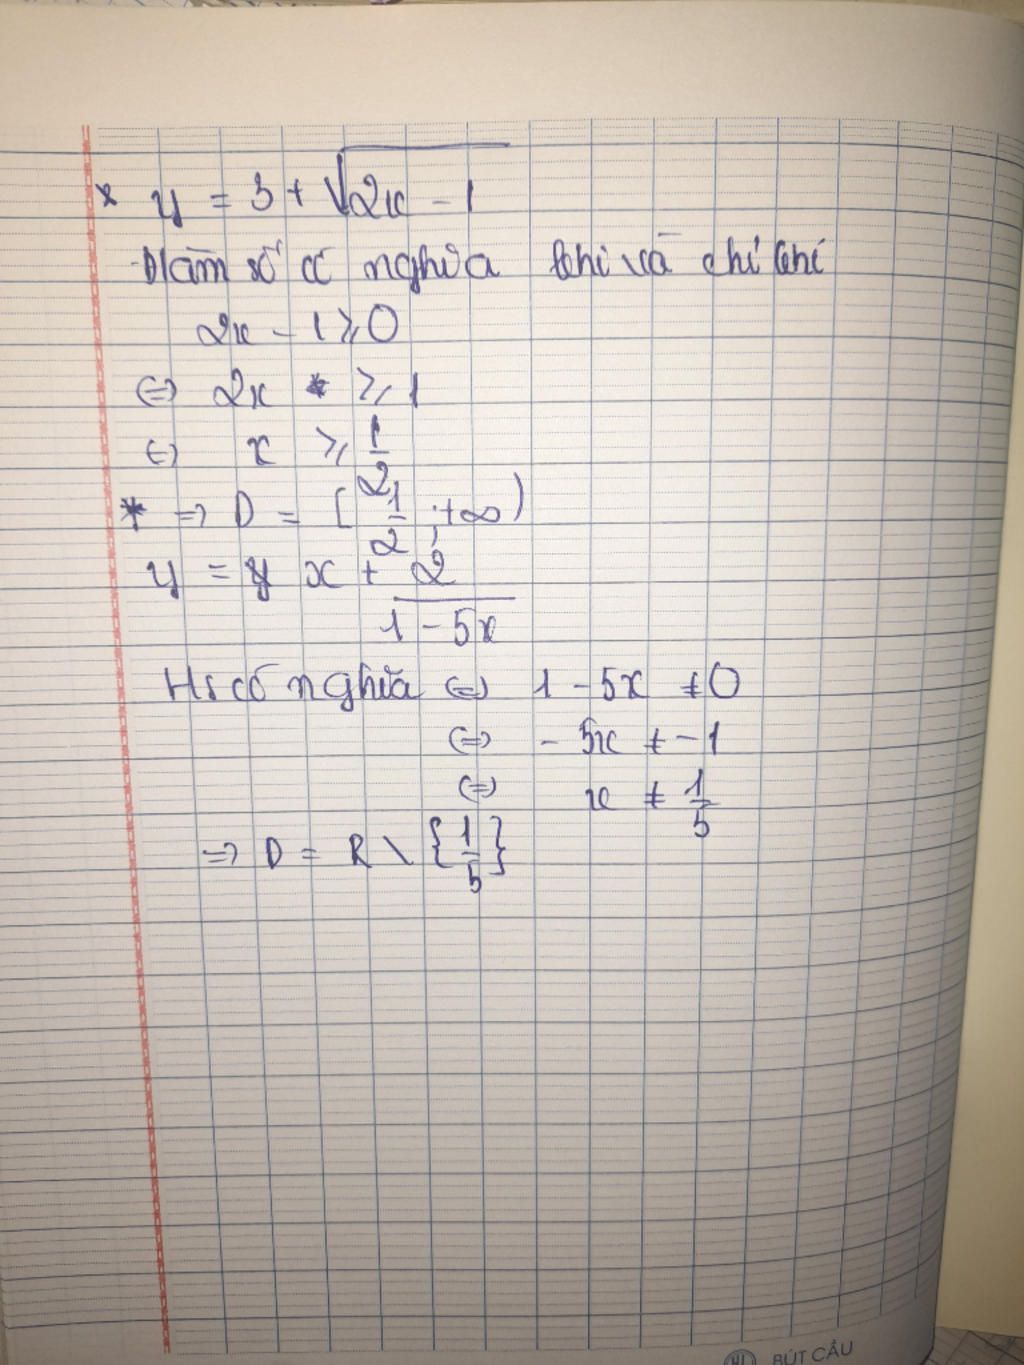 * y = 3 + √2x - 1
Hàm số có nghĩa khi và chỉ khi
2x - 1 ≥ 0
⇔ 2x ≥ 1
⇔ x ≥ 1/2
* ⇒ D = [1/2; +∞)
y = x + 2/(1 - 5x)
Hs có nghĩa ⇔ 1 - 5x ≠ 0
⇔ - 5x ≠ -1
⇔ x ≠ 1/5
⇒ D = R \ {1/5}
BÚT CẦU